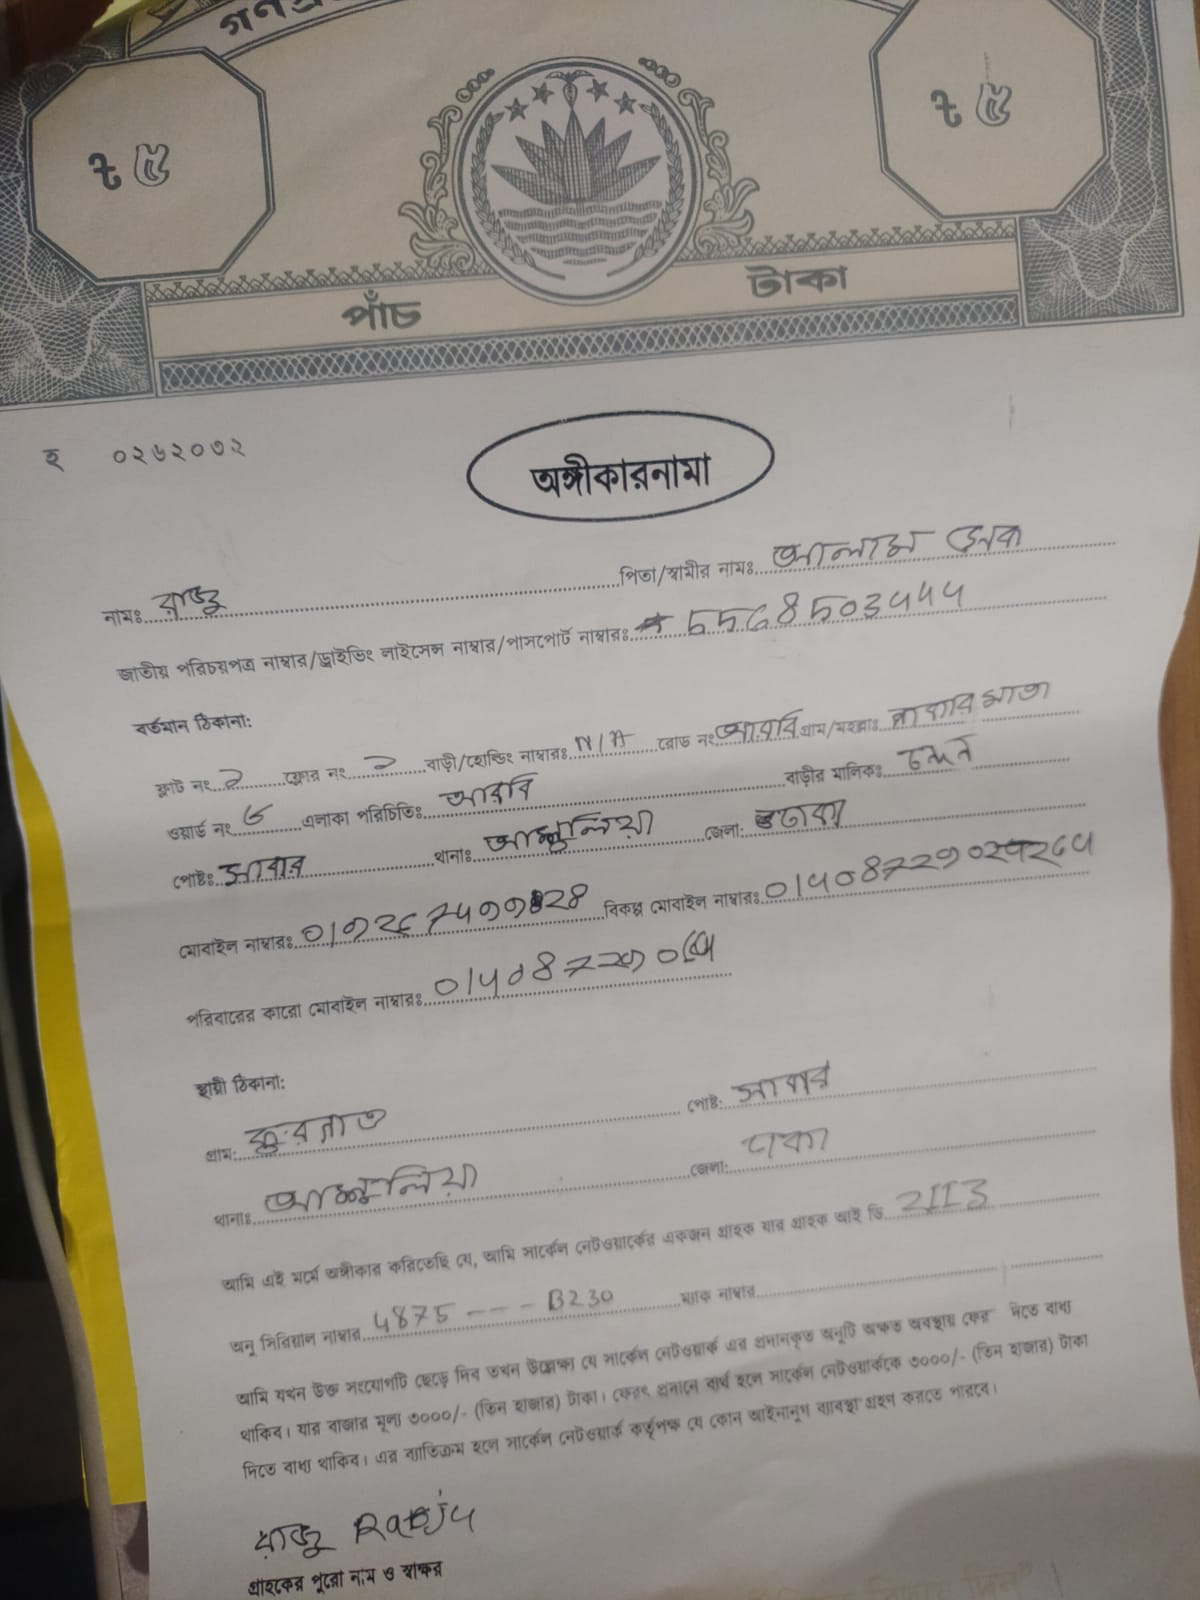 ৳ ৫
৳ ৫
পাঁচ টাকা
হ ০২৬২০৩২
অঙ্গীকারনামা
নামঃ রাজু পিতা/স্বামীর নামঃ আলাম
জাতীয় পরিচয়পত্র নাম্বার/ড্রাইভিং লাইসেন্স নাম্বার/পাসপোর্ট নাম্বারঃ
বর্তমান ঠিকানা:
ফ্লাট নং ২ ফ্লোর নং ২ বাড়ী/হোল্ডিং নাম্বারঃ N/A রোড নং আরবি গ্রাম/মহল্লাঃ
ওয়ার্ড নং ৬ এলাকা পরিচিতিঃ আরবি বাড়ীর মালিকঃ
পোষ্টঃ সাবার থানাঃ আশুলিয়া জেলা: ঢাকা
মোবাইল নাম্বারঃ বিকল্প মোবাইল নাম্বারঃ
পরিবারের কারো মোবাইল নাম্বারঃ
স্থায়ী ঠিকানা:
গ্রাম: পোষ্ট: সাবার
থানাঃ আশুলিয়া জেলা: ঢাকা
আমি এই মর্মে অঙ্গীকার করিতেছি যে, আমি সার্কেল নেটওয়ার্কের একজন গ্রাহক যার গ্রাহক আই ডি 2113
অনু সিরিয়াল নাম্বার 4875 --- B230 ম্যাক নাম্বার
আমি যখন উক্ত সংযোগটি ছেড়ে দিব তখন উল্লেক্ষ্য যে সার্কেল নেটওয়ার্ক এর প্রদানকৃত অনুটি অক্ষত অবস্থায় ফের দিতে বাধ্য
থাকিব। যার বাজার মূল্য ৩০০০/- (তিন হাজার) টাকা। ফেরৎ প্রদানে ব্যর্থ হলে সার্কেল নেটওয়ার্ককে ৩০০০/- (তিন হাজার) টাকা
দিতে বাধ্য থাকিব। এর ব্যাতিক্রম হলে সার্কেল নেটওয়ার্ক কর্তৃপক্ষ যে কোন আইনানুগ ব্যাবস্থা গ্রহণ করতে পারবে।
রাজু
গ্রাহকের পুরো নাম ও স্বাক্ষর